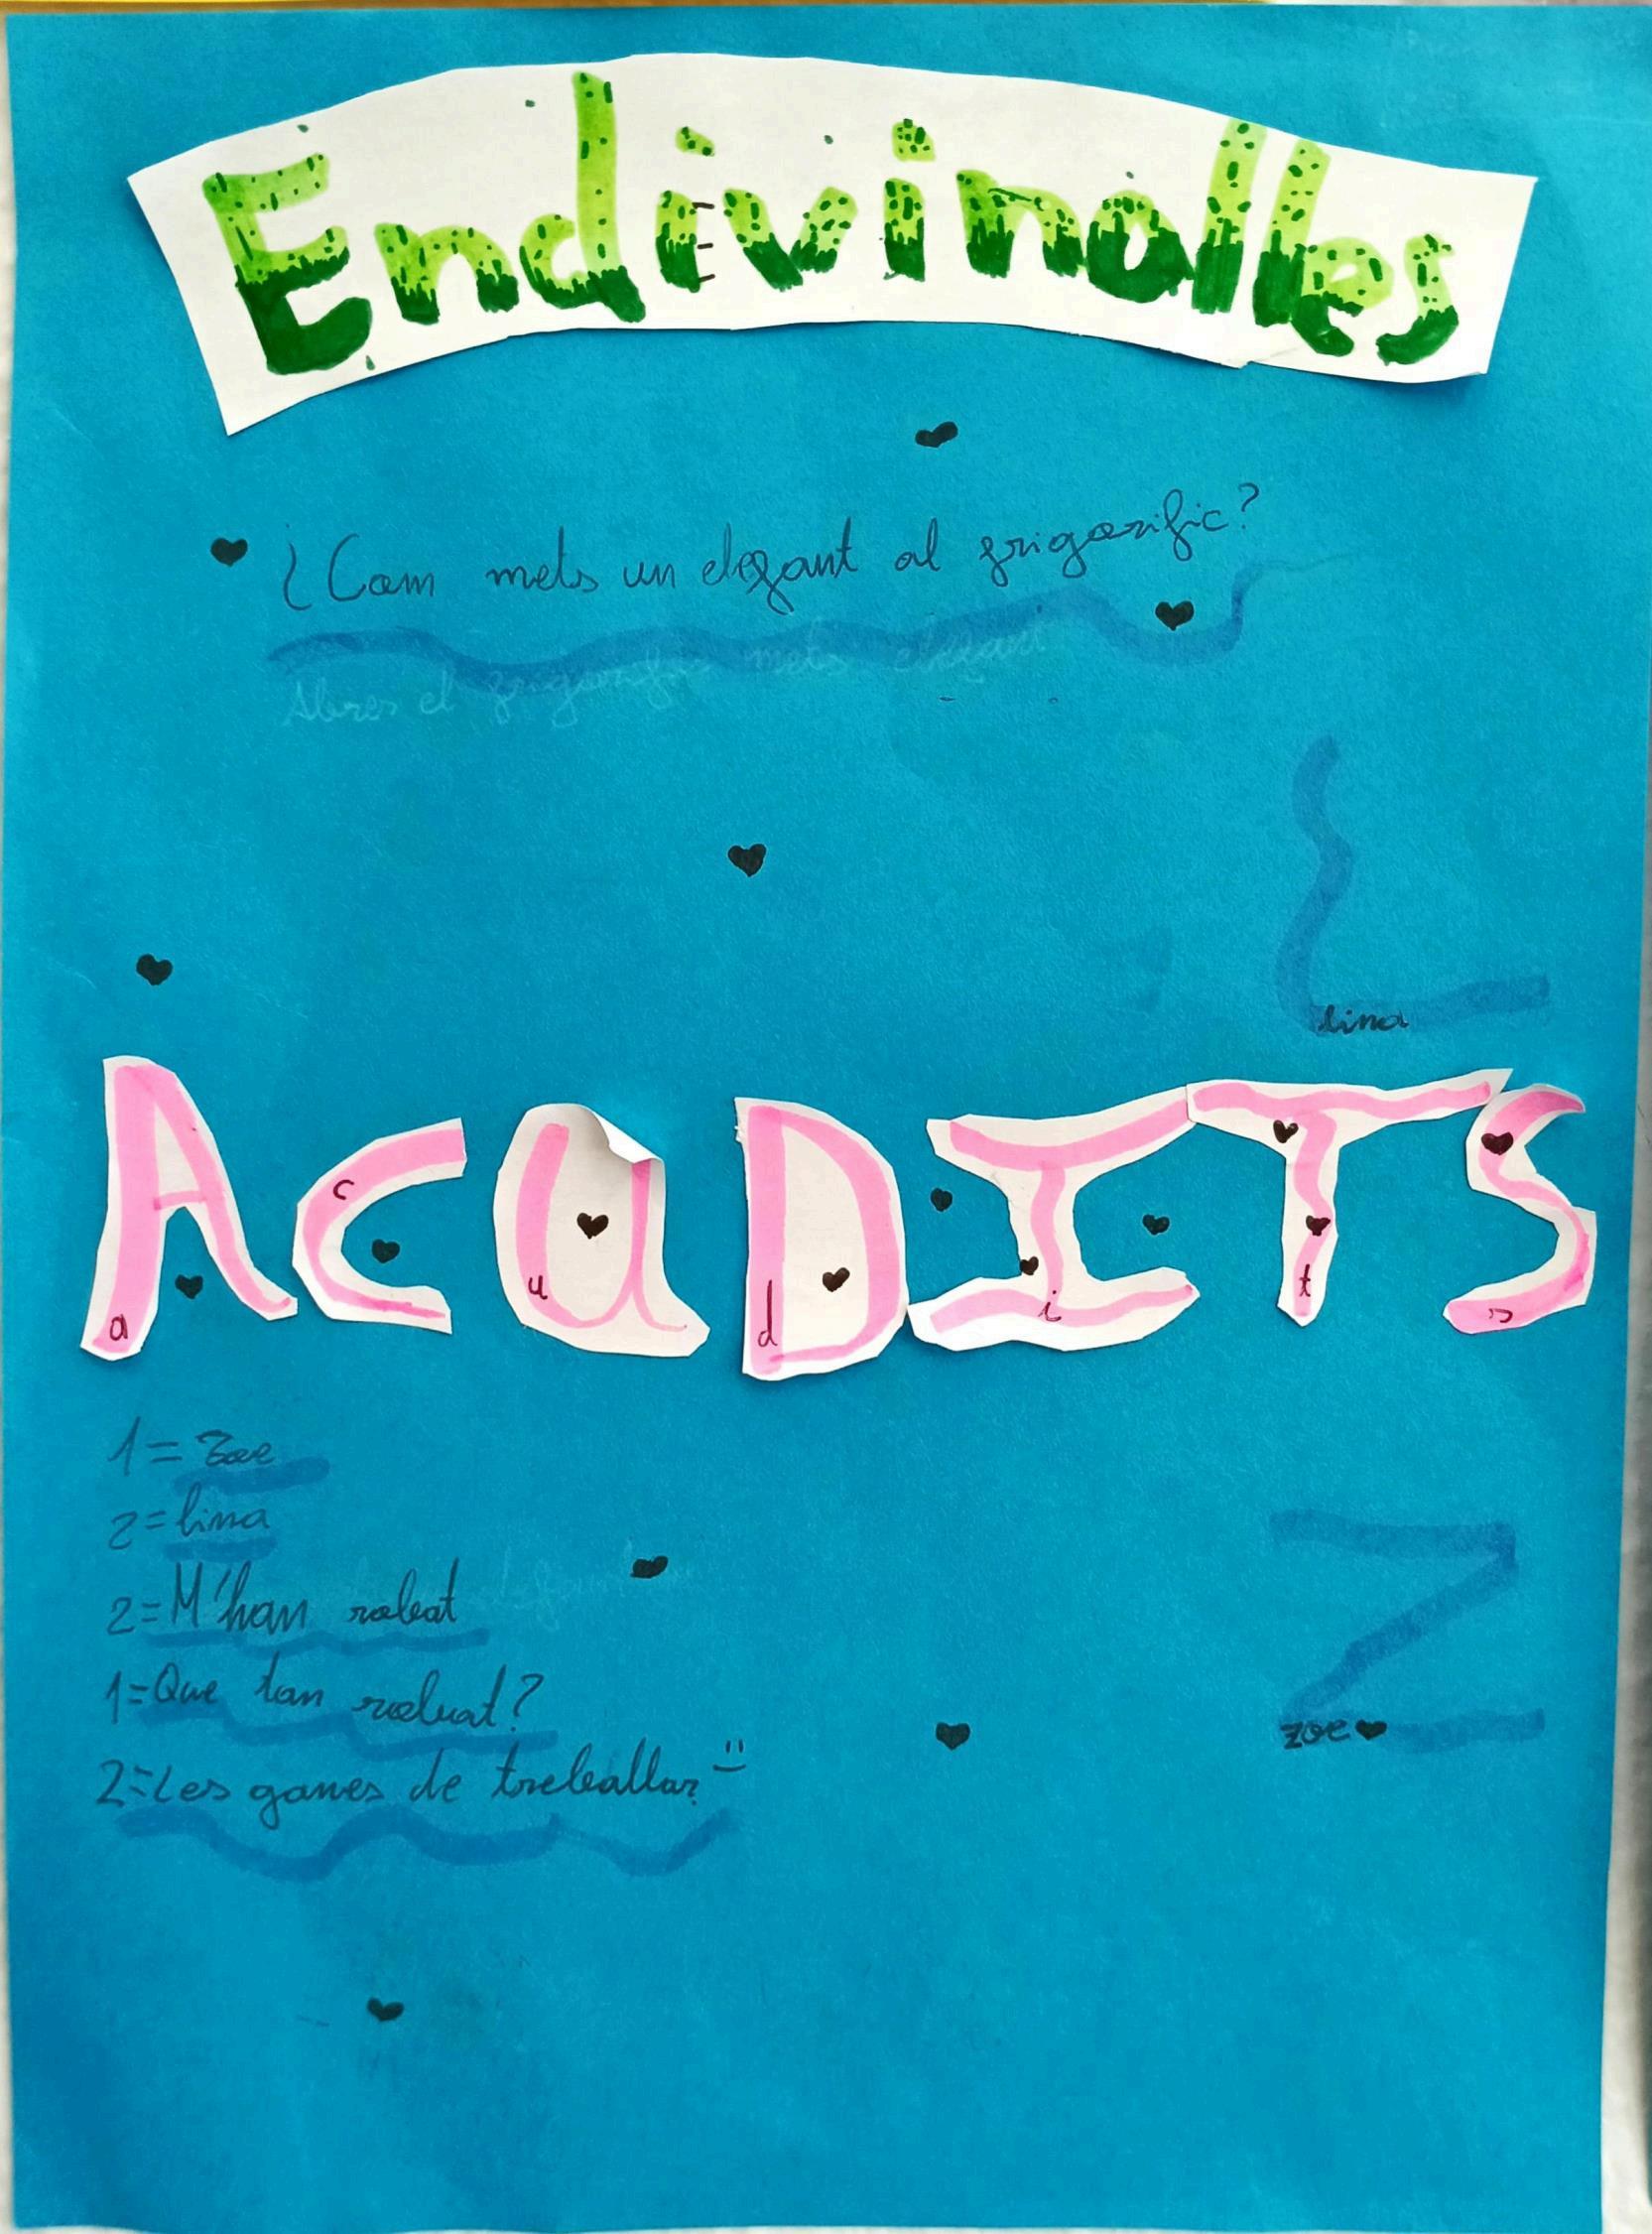 Endivinalles
¿Com mets un elefant al frigorífic?
Abres el frigorific mets elefant
lina
ACUDITS
a c u d i t s
1= Zoe
2= lina
2= M'han robat
1= Que tan robat?
2= Les ganes de treballar
zoe